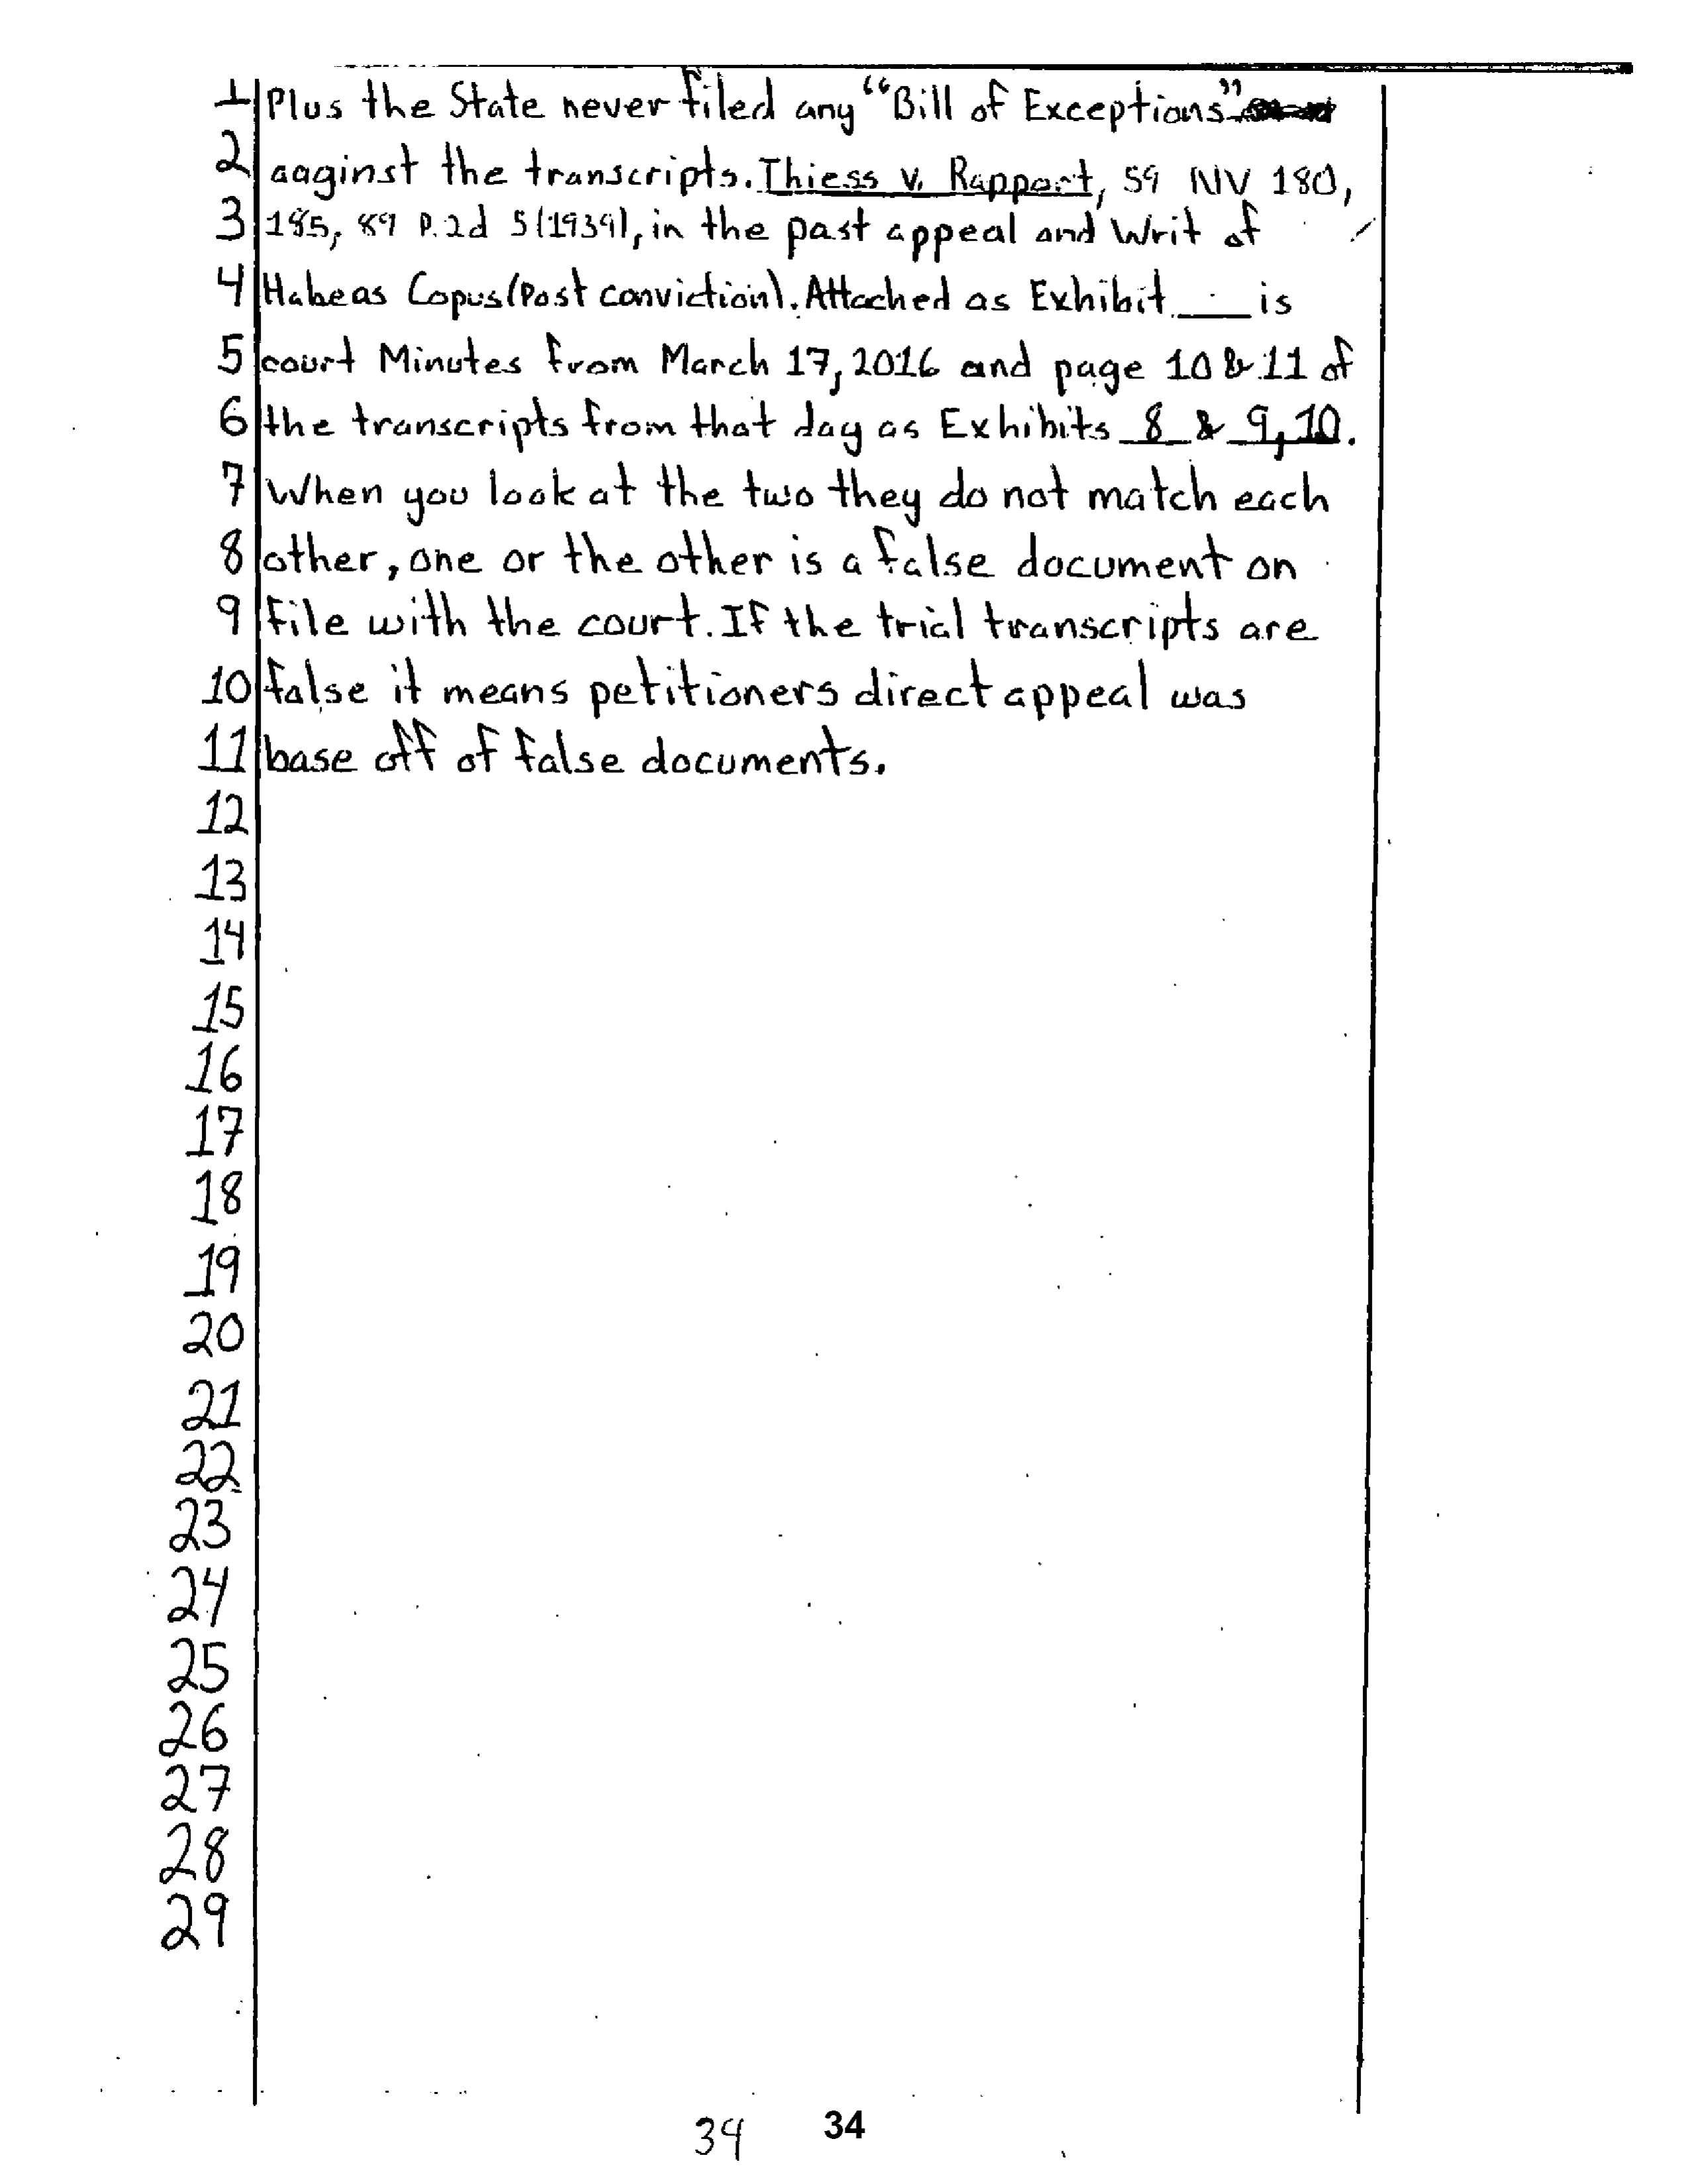 1 Plus the State never filed any "Bill of Exceptions"
2 aaginst the transcripts. Thiess v. Rapport, 59 NV 180,
3 185, 89 P.2d 5 (1939), in the past appeal and Writ of
4 Habeas Copus (Post conviction). Attached as Exhibit ___ is
5 court Minutes from March 17, 2016 and page 10 & 11 of
6 the transcripts from that day as Exhibits 8 & 9, 10.
7 When you look at the two they do not match each
8 other, one or the other is a false document on
9 file with the court. If the trial transcripts are
10 false it means petitioners direct appeal was
11 base off of false documents.
12
13
14
15
16
17
18
19
20
21
22
23
24
25
26
27
28
29
34 34